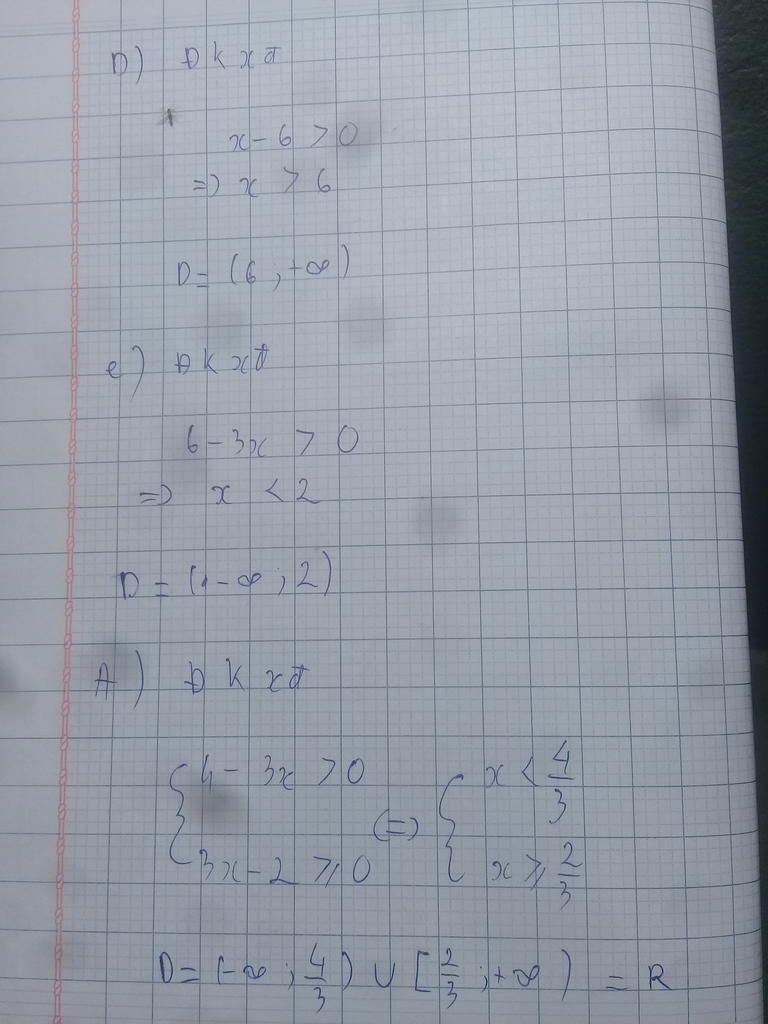 D) Đkxđ
x - 6 > 0
=> x > 6
D = (6 ; +∞)
e) Đkxđ
6 - 3x > 0
=> x < 2
D = (-∞ ; 2)
A) Đkxđ
{ 4 - 3x > 0 <=> { x < 4/3
{ 3x - 2 ⩾ 0 { x ⩾ 2/3
D = (-∞ ; 4/3) ∪ [2/3 ; +∞) = R